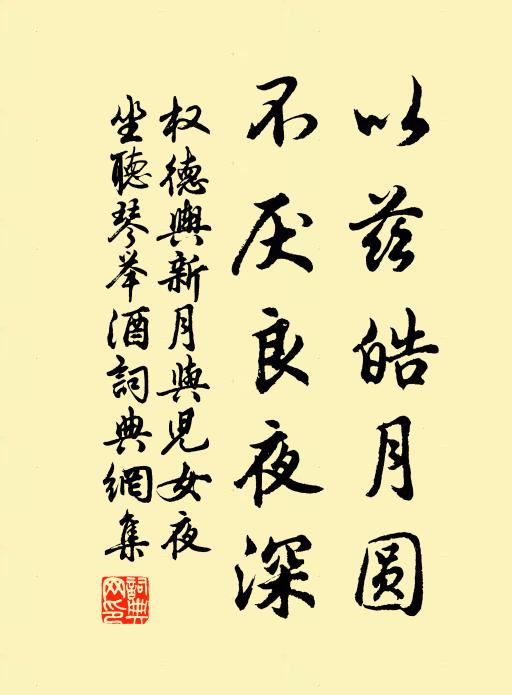 以兹皓月圆
不厌良夜深
权德舆新月与儿女夜
坐聽琴举酒詞典網集
詞典
网印